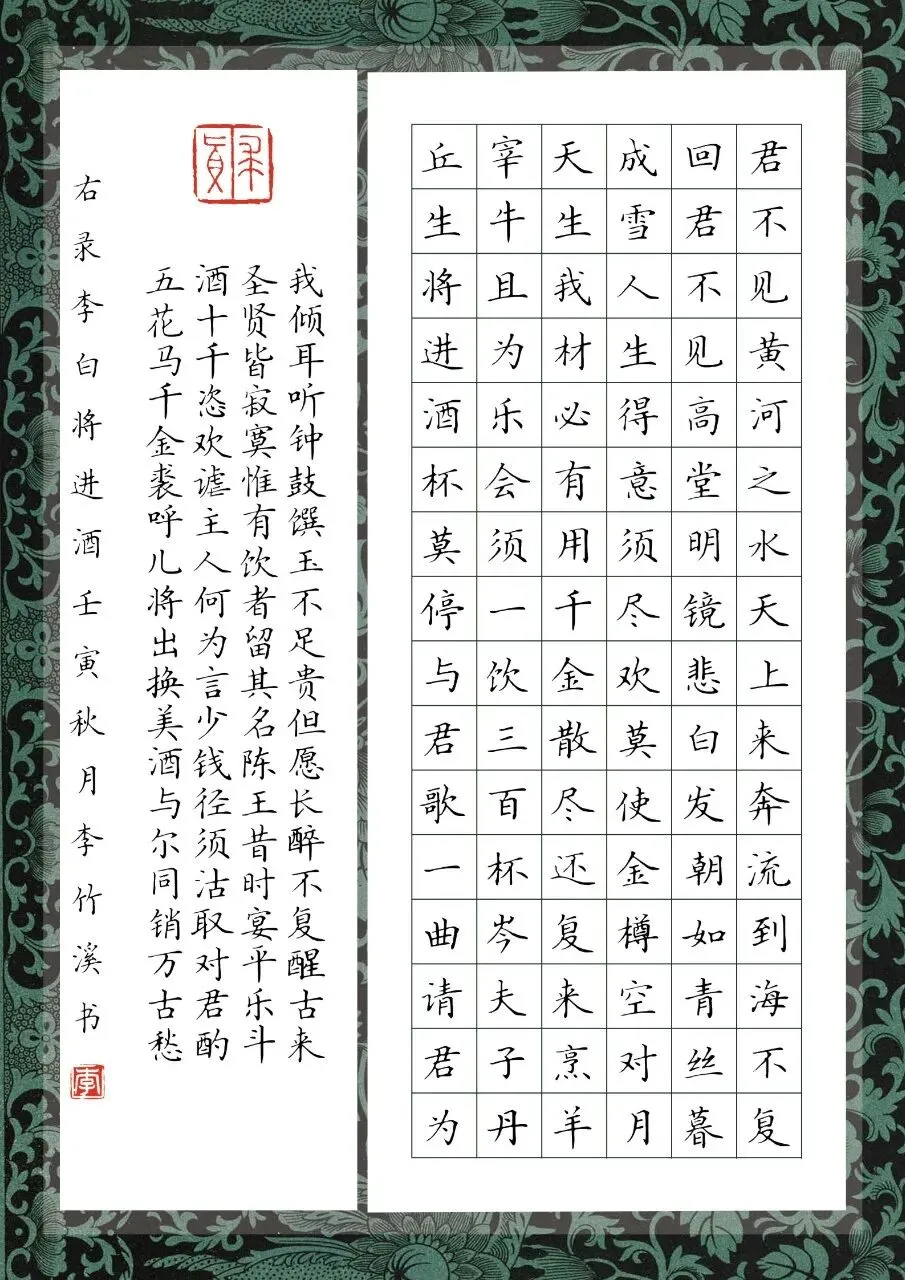 君不见黄河之水天上来奔流到海不复
回君不见高堂明镜悲白发朝如青丝暮
成雪人生得意须尽欢莫使金樽空对月
天生我材必有用千金散尽还复来烹羊
宰牛且为乐会须一饮三百杯岑夫子丹
丘生将进酒杯莫停与君歌一曲请君为
我倾耳听钟鼓馔玉不足贵但愿长醉不复醒古来
圣贤皆寂寞惟有饮者留其名陈王昔时宴平乐斗
酒十千恣欢谑主人何为言少钱径须沽取对君酌
五花马千金裘呼儿将出换美酒与尔同销万古愁
右录李白将进酒壬寅秋月李竹溪书
李